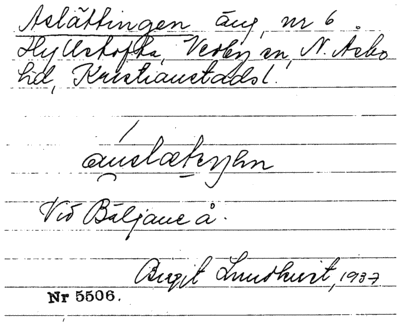 Aslättingen äng, nr 6
Hyllstofta, Vedby sn, N. Åsbo
hd, Kristianstads l.
Vid Bäljane å.
Birgit Lundkvist, 1937
Nr 5506.